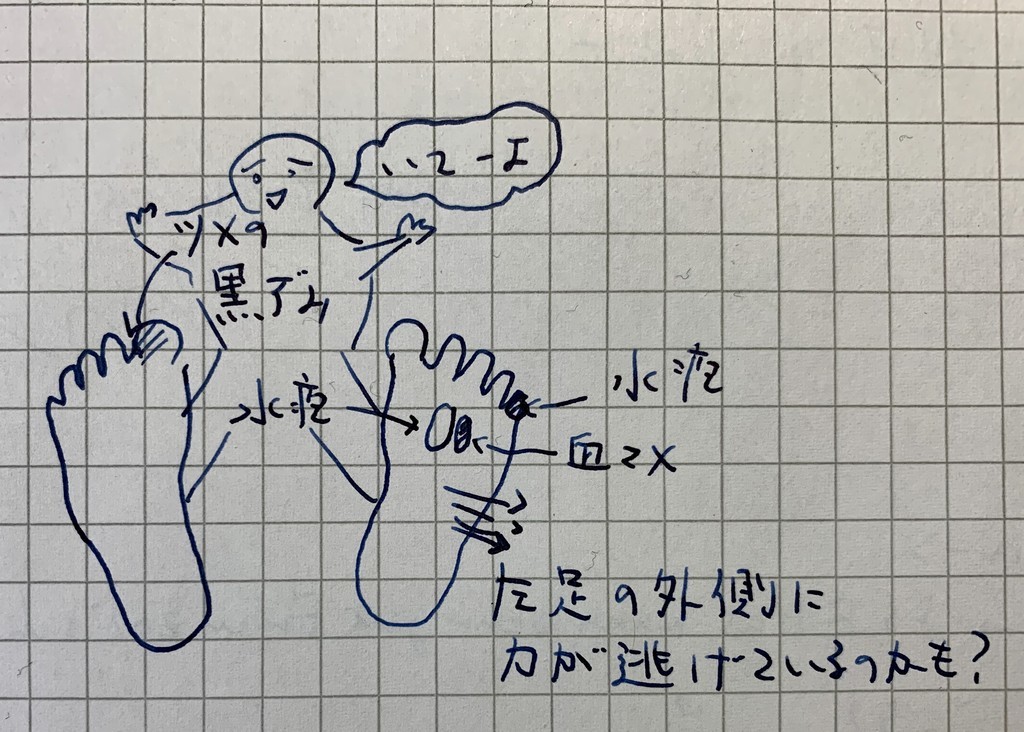 いてーよ
ツメの
黒ずみ
水疱
水疱
血マメ
左足の外側に
力が逃げているのかも?